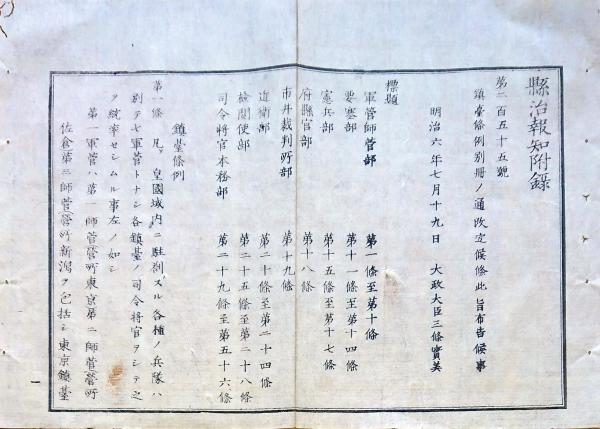 縣治報知附錄
第二百五十五號
鎮臺條例別冊ノ通改定候條此旨布告候事
明治六年七月十九日　大政大臣三條實美
標題
軍管師管部　第一條至第十條
要塞部　第十一條至第十四條
憲兵部　第十五條至第十七條
府縣官部　第十八條
市井裁判所部　第十九條
近衛部　第二十條至第二十四條
檢閱使部　第二十五條至第二十八條
司令將官本務部　第二十九條至第五十六條
鎮臺條例
第一條　凡ソ皇國城内ニ駐劄スル各種ノ兵隊ハ
別テ七軍管トナシ各鎮臺ノ司令將官ヲシテ之
ヲ統率セシムル事左ノ如シ
第一軍管ハ第一師管營所東京第二師管營所
佐倉第三師管營所新潟ヲ包括シ東京鎮臺
一